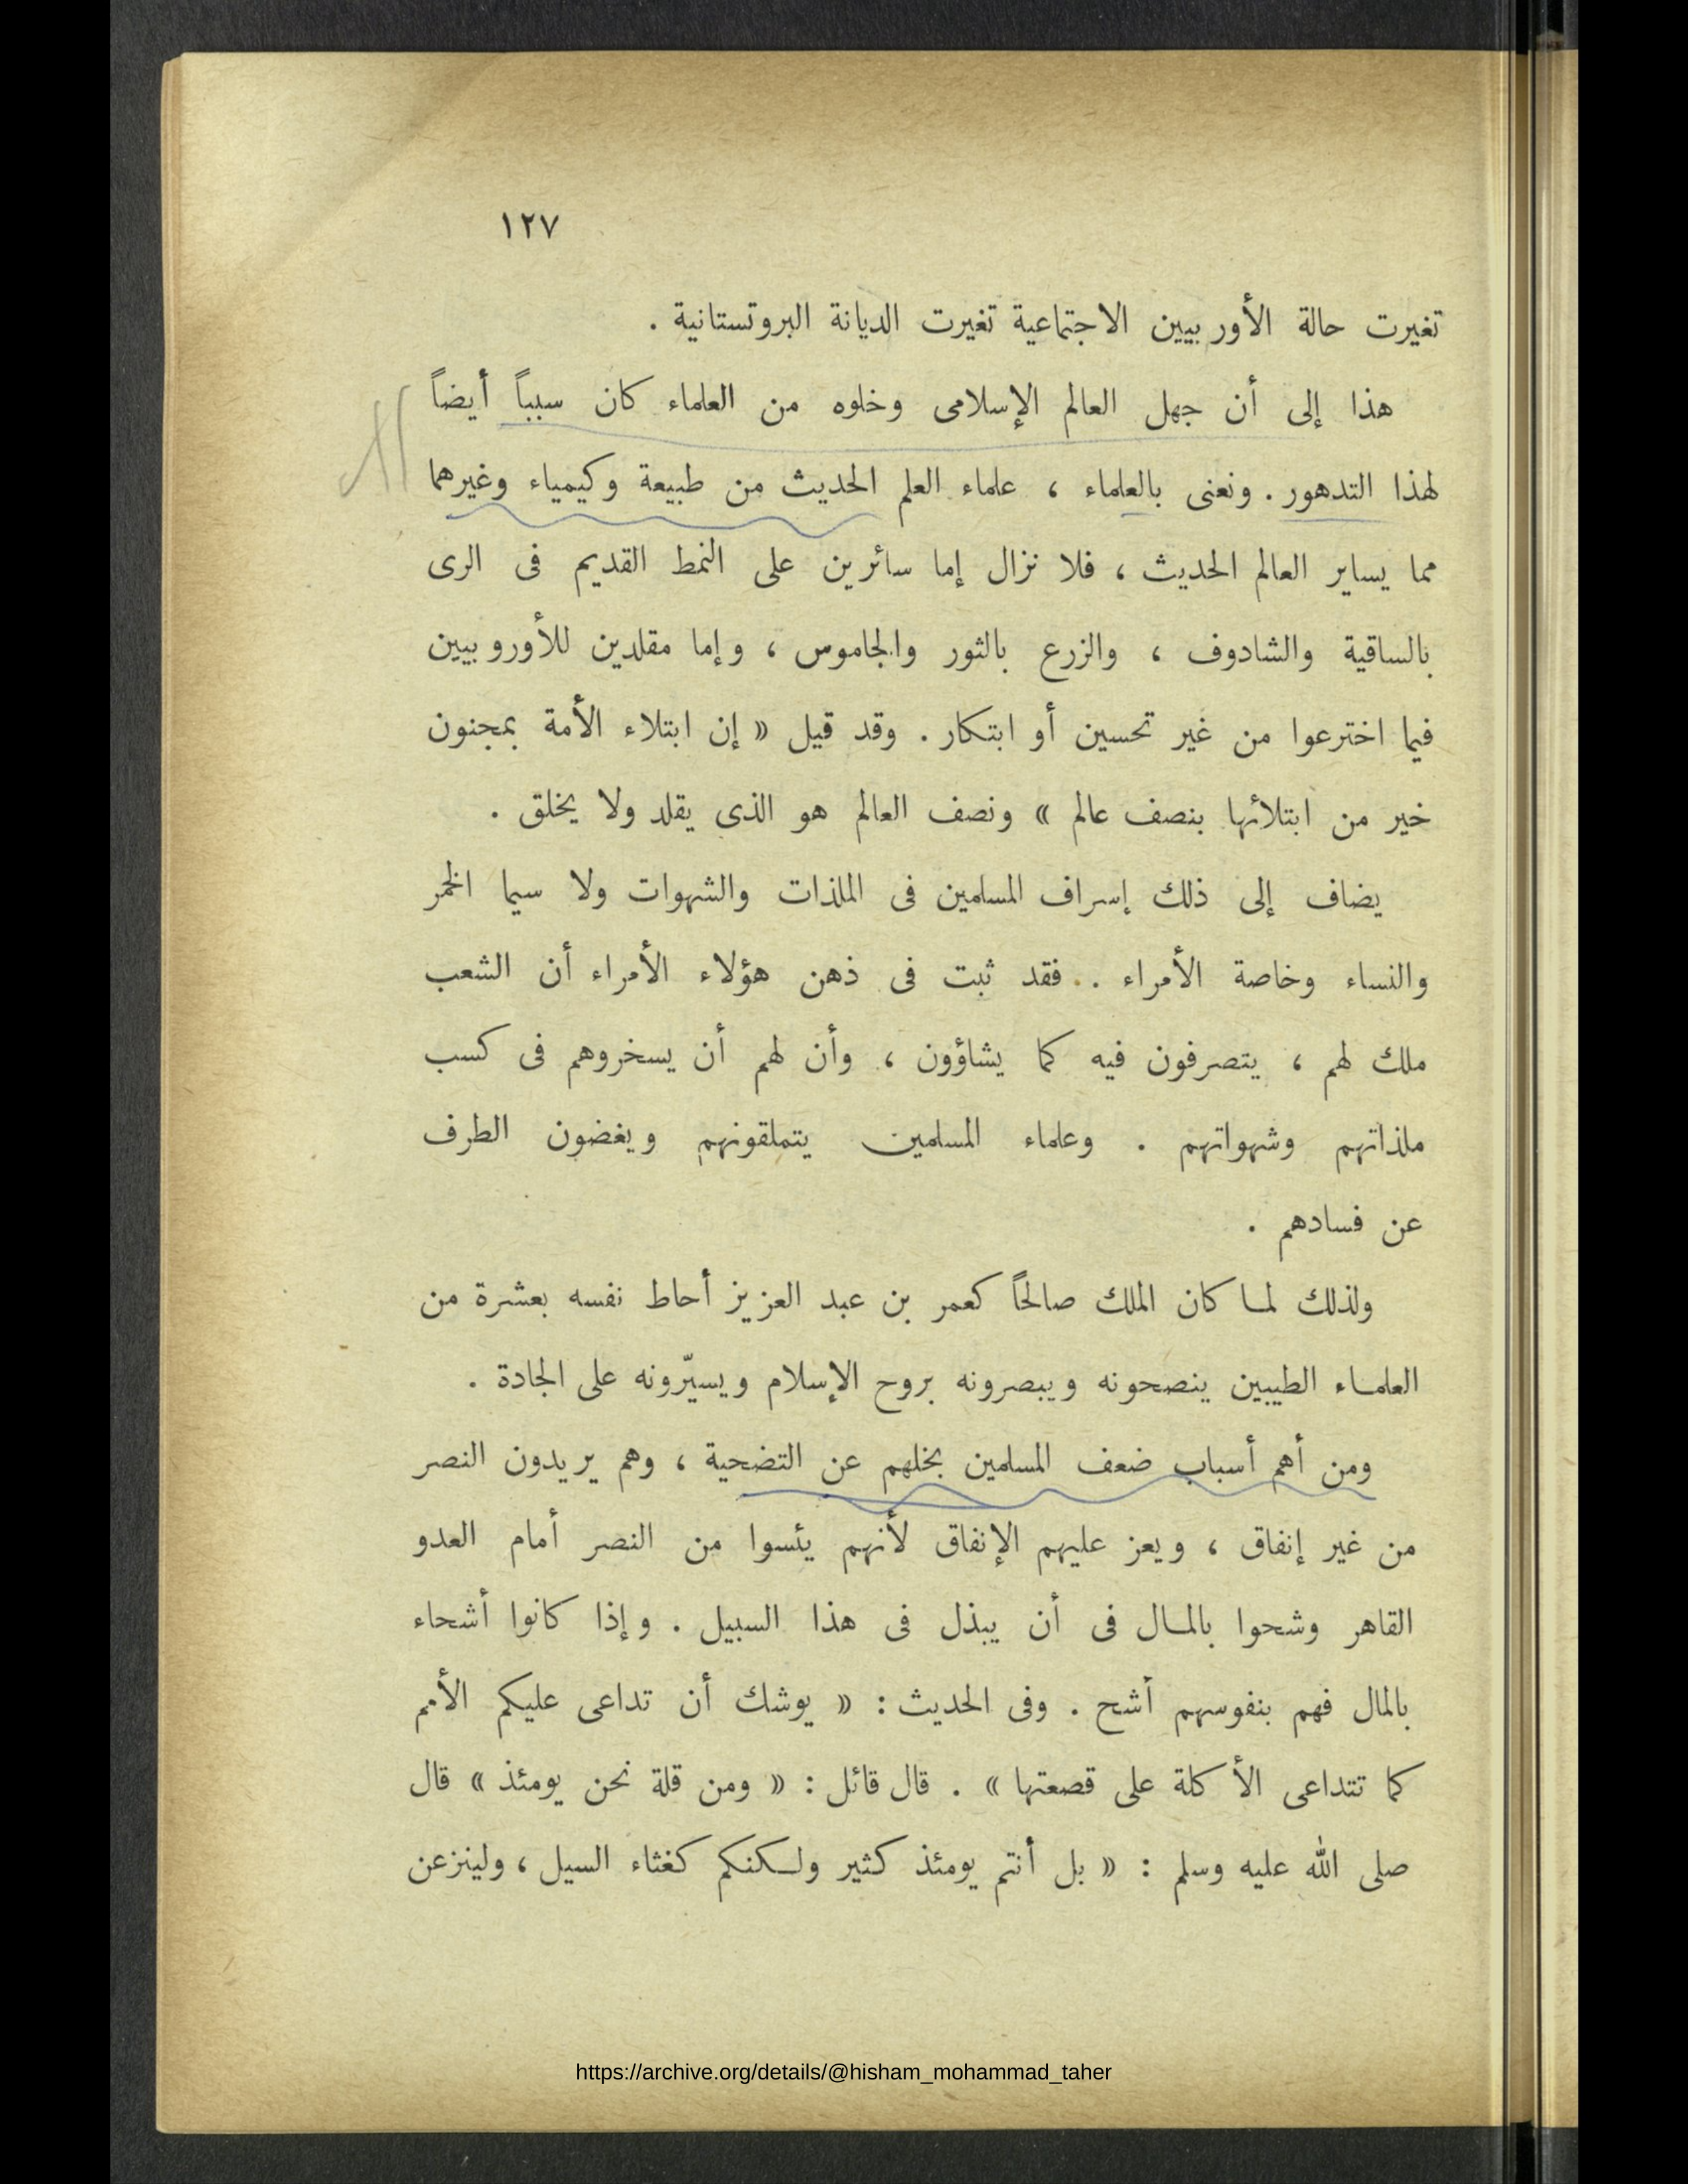 ١٢٧
تغيرت حالة الأوربيين الاجتماعية تغيرت الديانة البروتستانية .
هذا إلى أن جهل العالم الإسلامى وخلوه من العلماء كان سبباً أيضاً
لهذا التدهور . ونعنى بالعلماء ، علماء العلم الحديث من طبيعة وكيمياء وغيرهما
مما يساير العالم الحديث ، فلا نزال إما سائرين على النمط القديم فى الرى
بالساقية والشادوف ، والزرع بالثور والجاموس ، وإما مقلدين للأوروبيين
فيما اخترعوا من غير تحسين أو ابتكار . وقد قيل « إن ابتلاء الأمة بمجنون
خير من ابتلائها بنصف عالم » ونصف العالم هو الذى يقلد ولا يخلق .
يضاف إلى ذلك إسراف المسلمين فى الملذات والشهوات ولا سيما الخمر
والنساء وخاصة الأمراء .. فقد ثبت فى ذهن هؤلاء الأمراء أن الشعب
ملك لهم ، يتصرفون فيه كما يشاؤون ، وأن لهم أن يسخروهم فى كسب
ملذاتهم وشهواتهم . وعلماء المسلمين يتملقونهم ويغضون الطرف
عن فسادهم .
ولذلك لما كان الملك صالحاً كعمر بن عبد العزيز أحاط نفسه بعشرة من
العلماء الطيبين ينصحونه ويبصرونه بروح الإسلام ويسيّرونه على الجادة .
ومن أهم أسباب ضعف المسلمين بخلهم عن التضحية ، وهم يريدون النصر
من غير إنفاق ، ويعز عليهم الإنفاق لأنهم يئسوا من النصر أمام العدو
القاهر وشحوا بالمال فى أن يبذل فى هذا السبيل . وإذا كانوا أشحاء
بالمال فهم بنفوسهم أشح . وفى الحديث : « يوشك أن تداعى عليكم الأمم
كما تتداعى الأكلة على قصعتها » . قال قائل : « ومن قلة نحن يومئذ » قال
صلى الله عليه وسلم : « بل أنتم يومئذ كثير ولكنكم كغثاء السيل ، ولينزعن
https://archive.org/details/@hisham_mohammad_taher